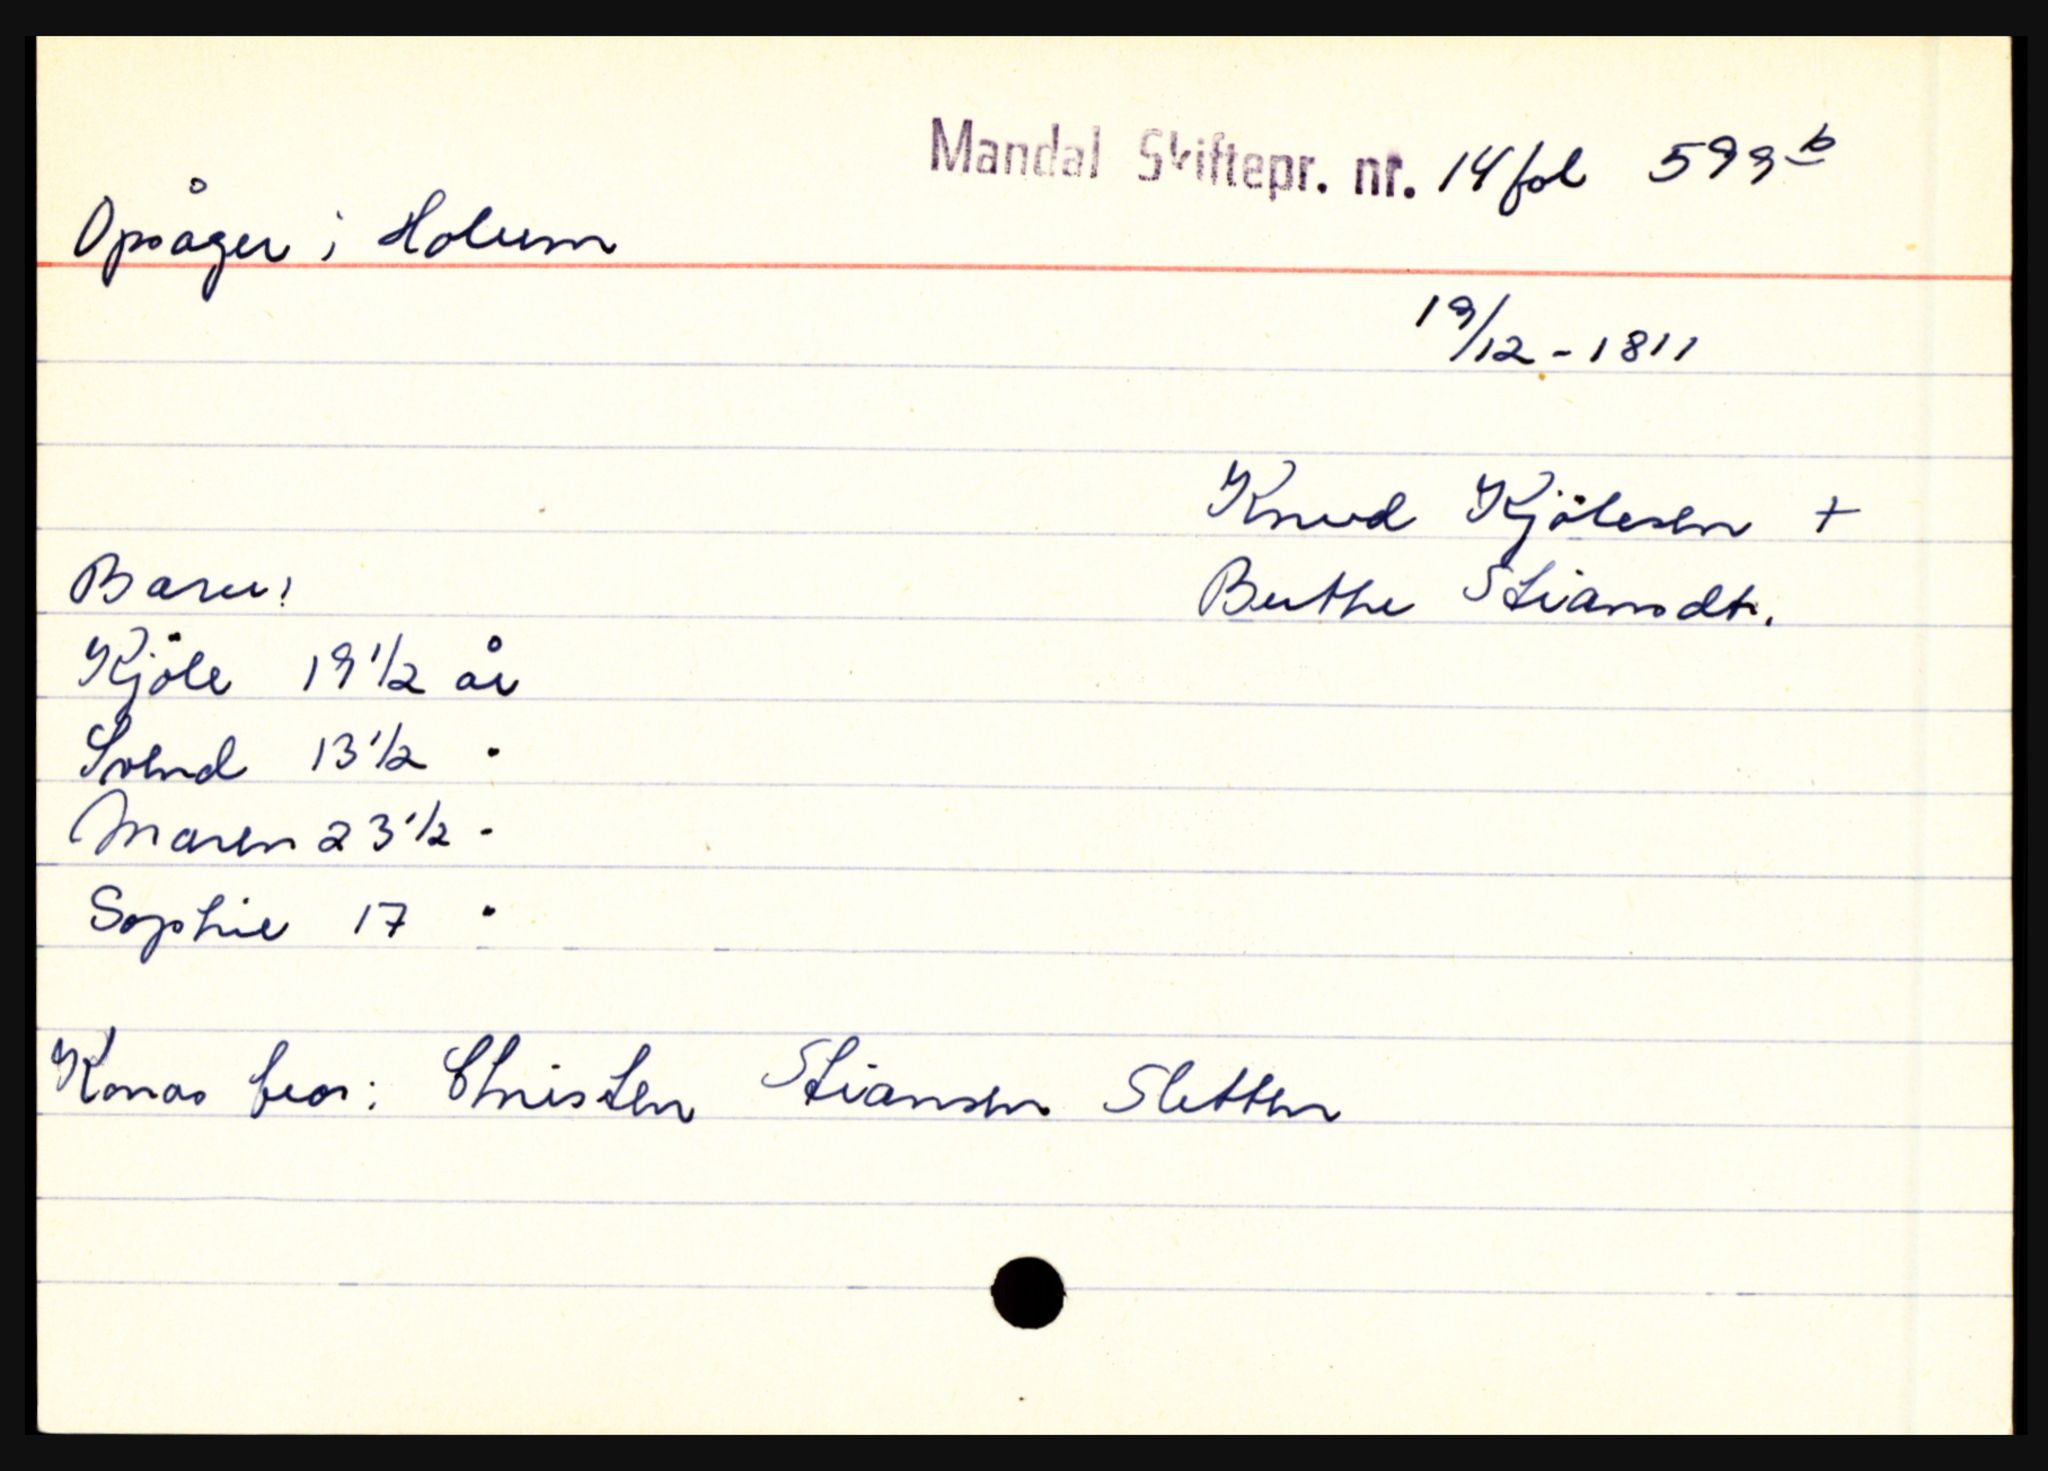 Mandal Skiftepr. nr. 14 fol 599 b
Opsåger i Holum
19/12 - 1811
Knud Kjölesen +
Berthe Stiansdt.
Barn:
Kjöle 19 1/2 år
Svend 13 1/2 "
Maren 23 1/2 "
Sophie 17 "
Konas bror: Christen Stiansen Sletten